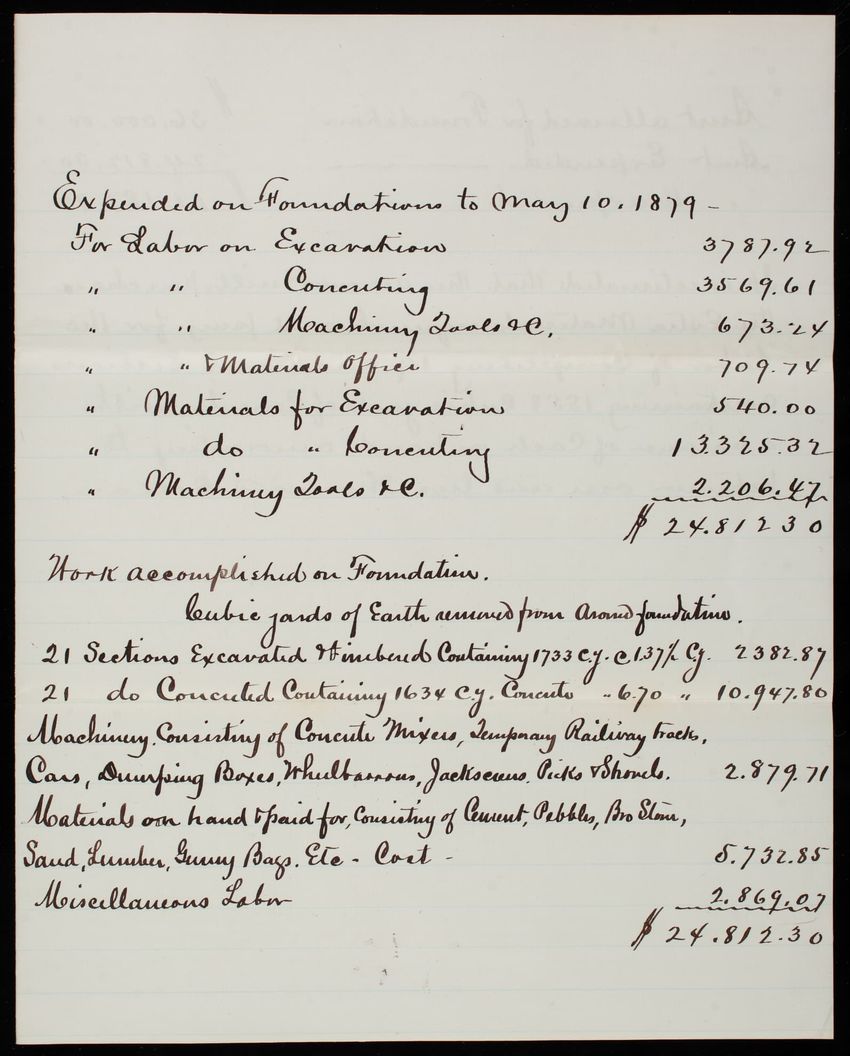 Expended on Foundations to May 10. 1879 -
For Labor on Excavation 3787.92
" " Concreting 3569.61
" " Machinery Tools &C. 673.24
" " & Materials Office 709.74
" Materials for Excavation 540.00
" do " Concreting 13325.32
" Machinery Tools &C. 2.206.47
$ 24.812 30
Work accomplished on Foundation.
Cubic yards of Earth removed from Around foundation.
21 Sections Excavated & timbered Containing 1733 c.y. @ 1.37½ Cy. 2382.87
21 do Concreted Containing 1634 c.y. Concrete " 6.70 " 10.947.80
Machinery. Consisting of Concrete Mixers, Temporary Railway tracks,
Cars, Dumping Boxes, Wheelbarrows, Jackscrews, Picks & Shovels. 2.879.71
Materials on hand & paid for, Consisting of Cement, Pebbles, Bro Stone,
Sand, Lumber, Gunny Bags. Etc - Cost - 5.732.85
Miscellaneous Labor 2.869.07
$ 24.812.30